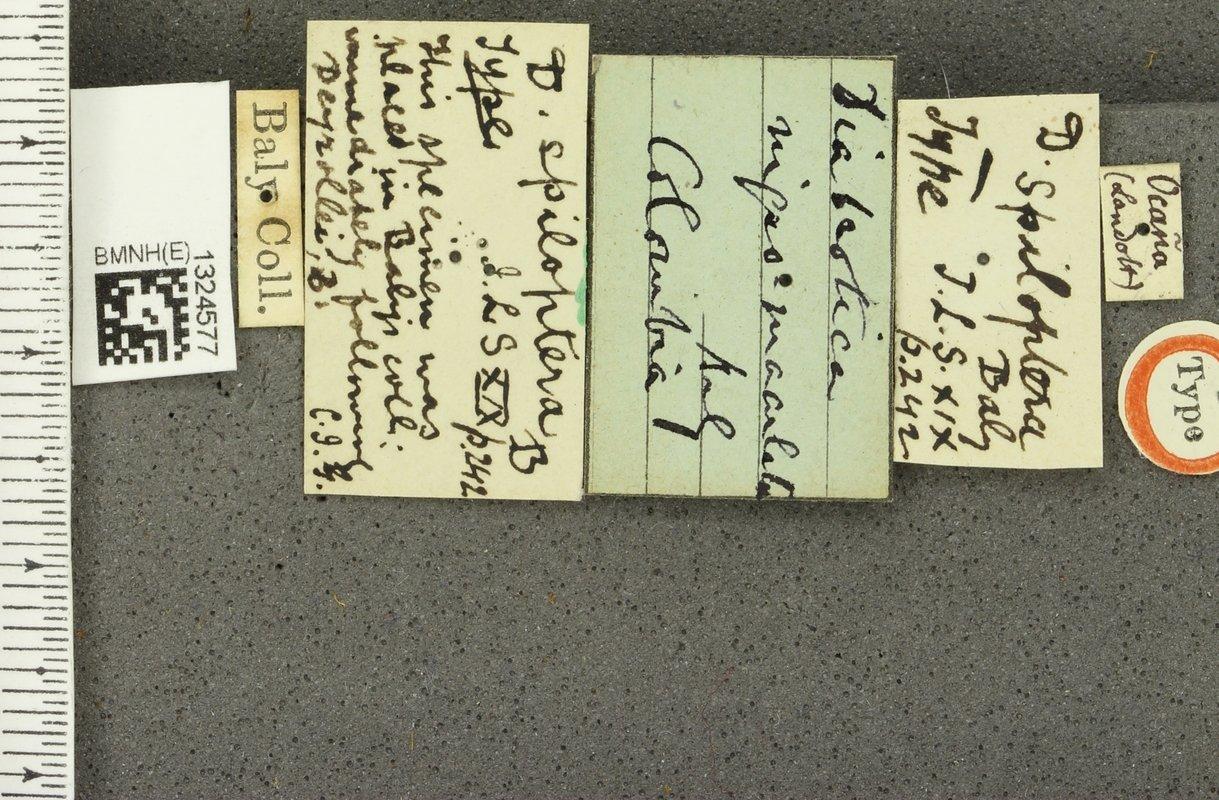 BMNH(E)
1324577
Baly Coll.
D. spiloptera B
Types J. L. S XIX p. 242
This specimen was
placed in Baly's coll:
immediately following
Deyrollei, B.
C. J. G.
Diabrotica
nigromaculata
Baly
Colombia
D. Spiloptera
Baly
Type J. L. S. XIX
p. 242
Ocaña
(Landolt)
Type